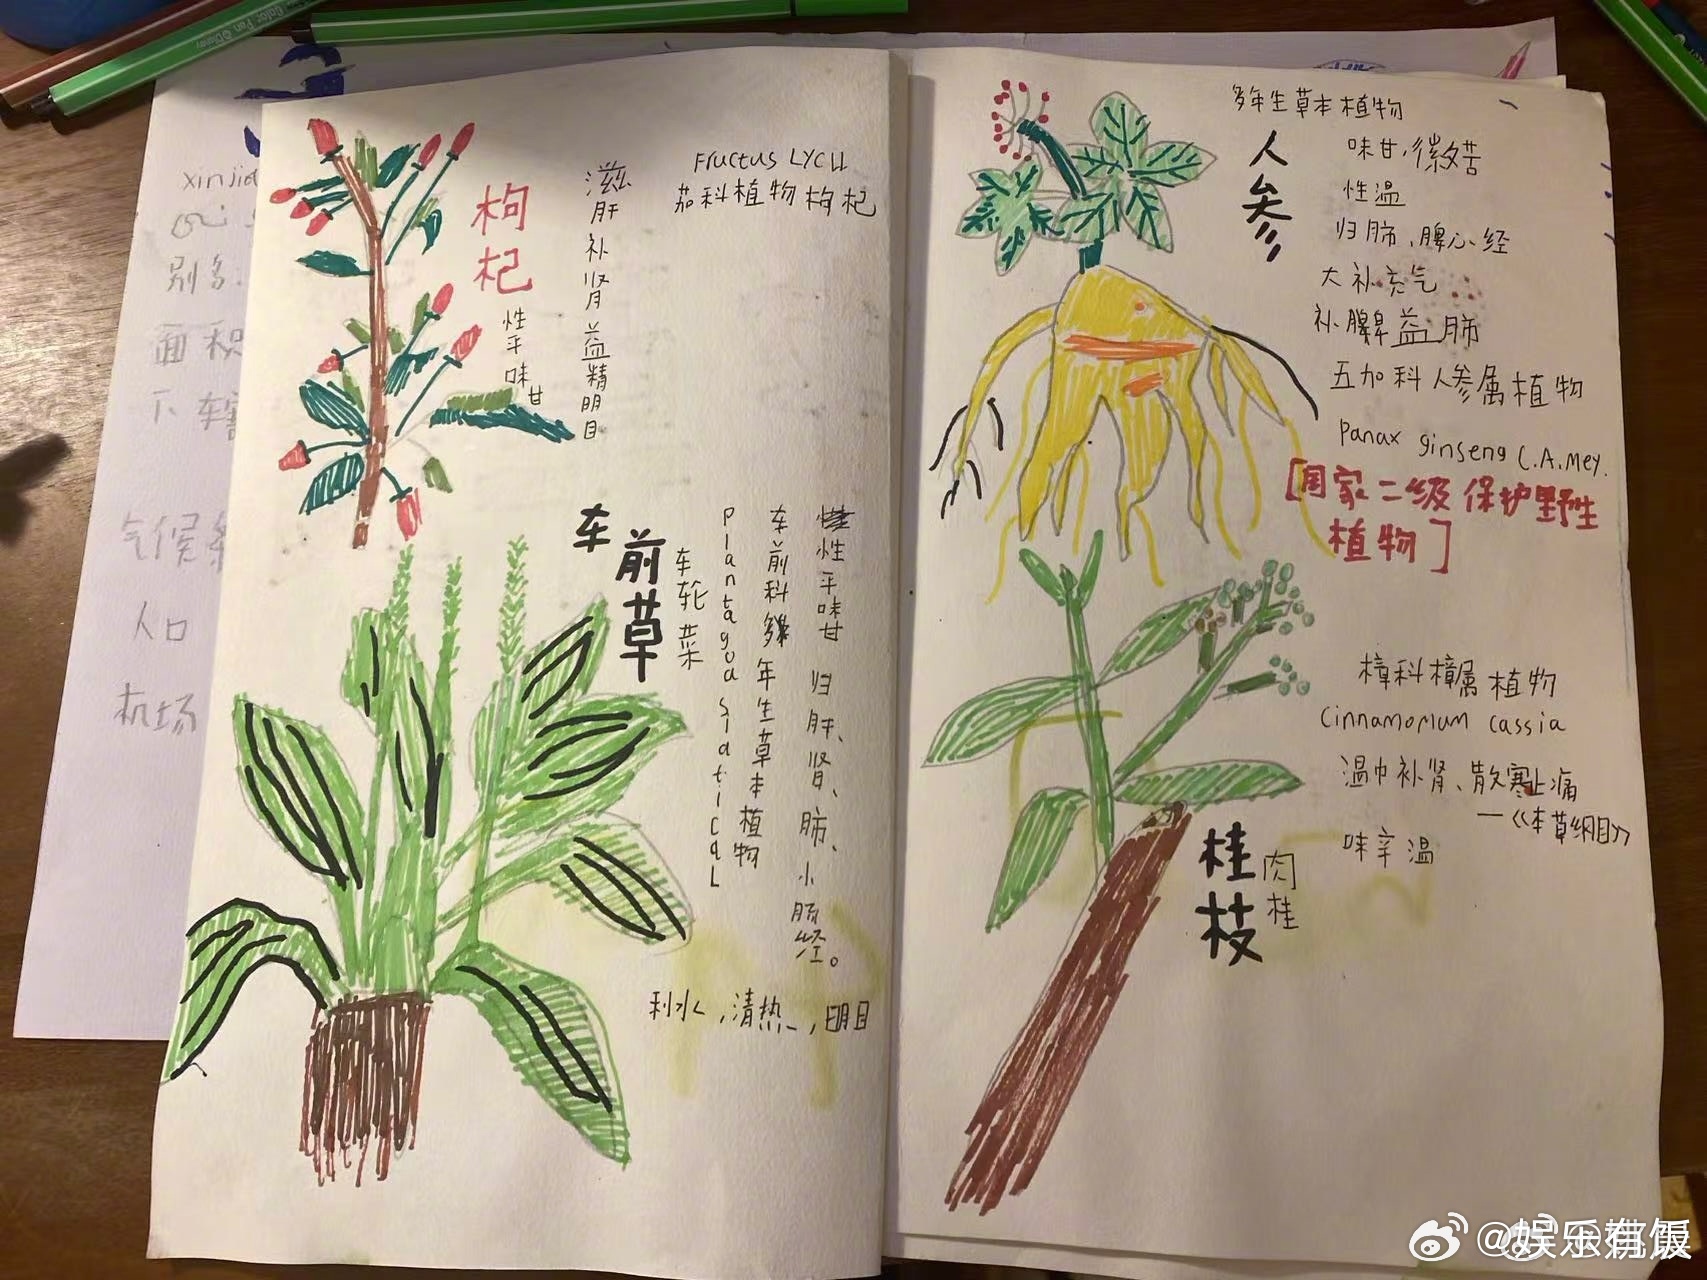 Color Pen ©Disney
xinjia
别名
面积
下辖
气候条
人口
机场
枸杞
性平味甘
滋肝补肾益精明目
Fructus LYCII
茄科植物枸杞
车前草
车轮菜
Plantagoa Siatical
车前科多年生草本植物
性平味甘 归肝、肾、肺、小肠经。
利水，清热，明目
多年生草本植物
人参
味甘、微苦
性温
归肺、脾心经
大补充气
补脾益肺
五加科人参属植物
Panax ginseng C.A.Mey.
[国家二级保护野生
植物]
樟科樟属植物
Cinnamomum cassia
温巾补肾、散寒止痛
—《本草纲目》
味辛温
桂枝
肉桂